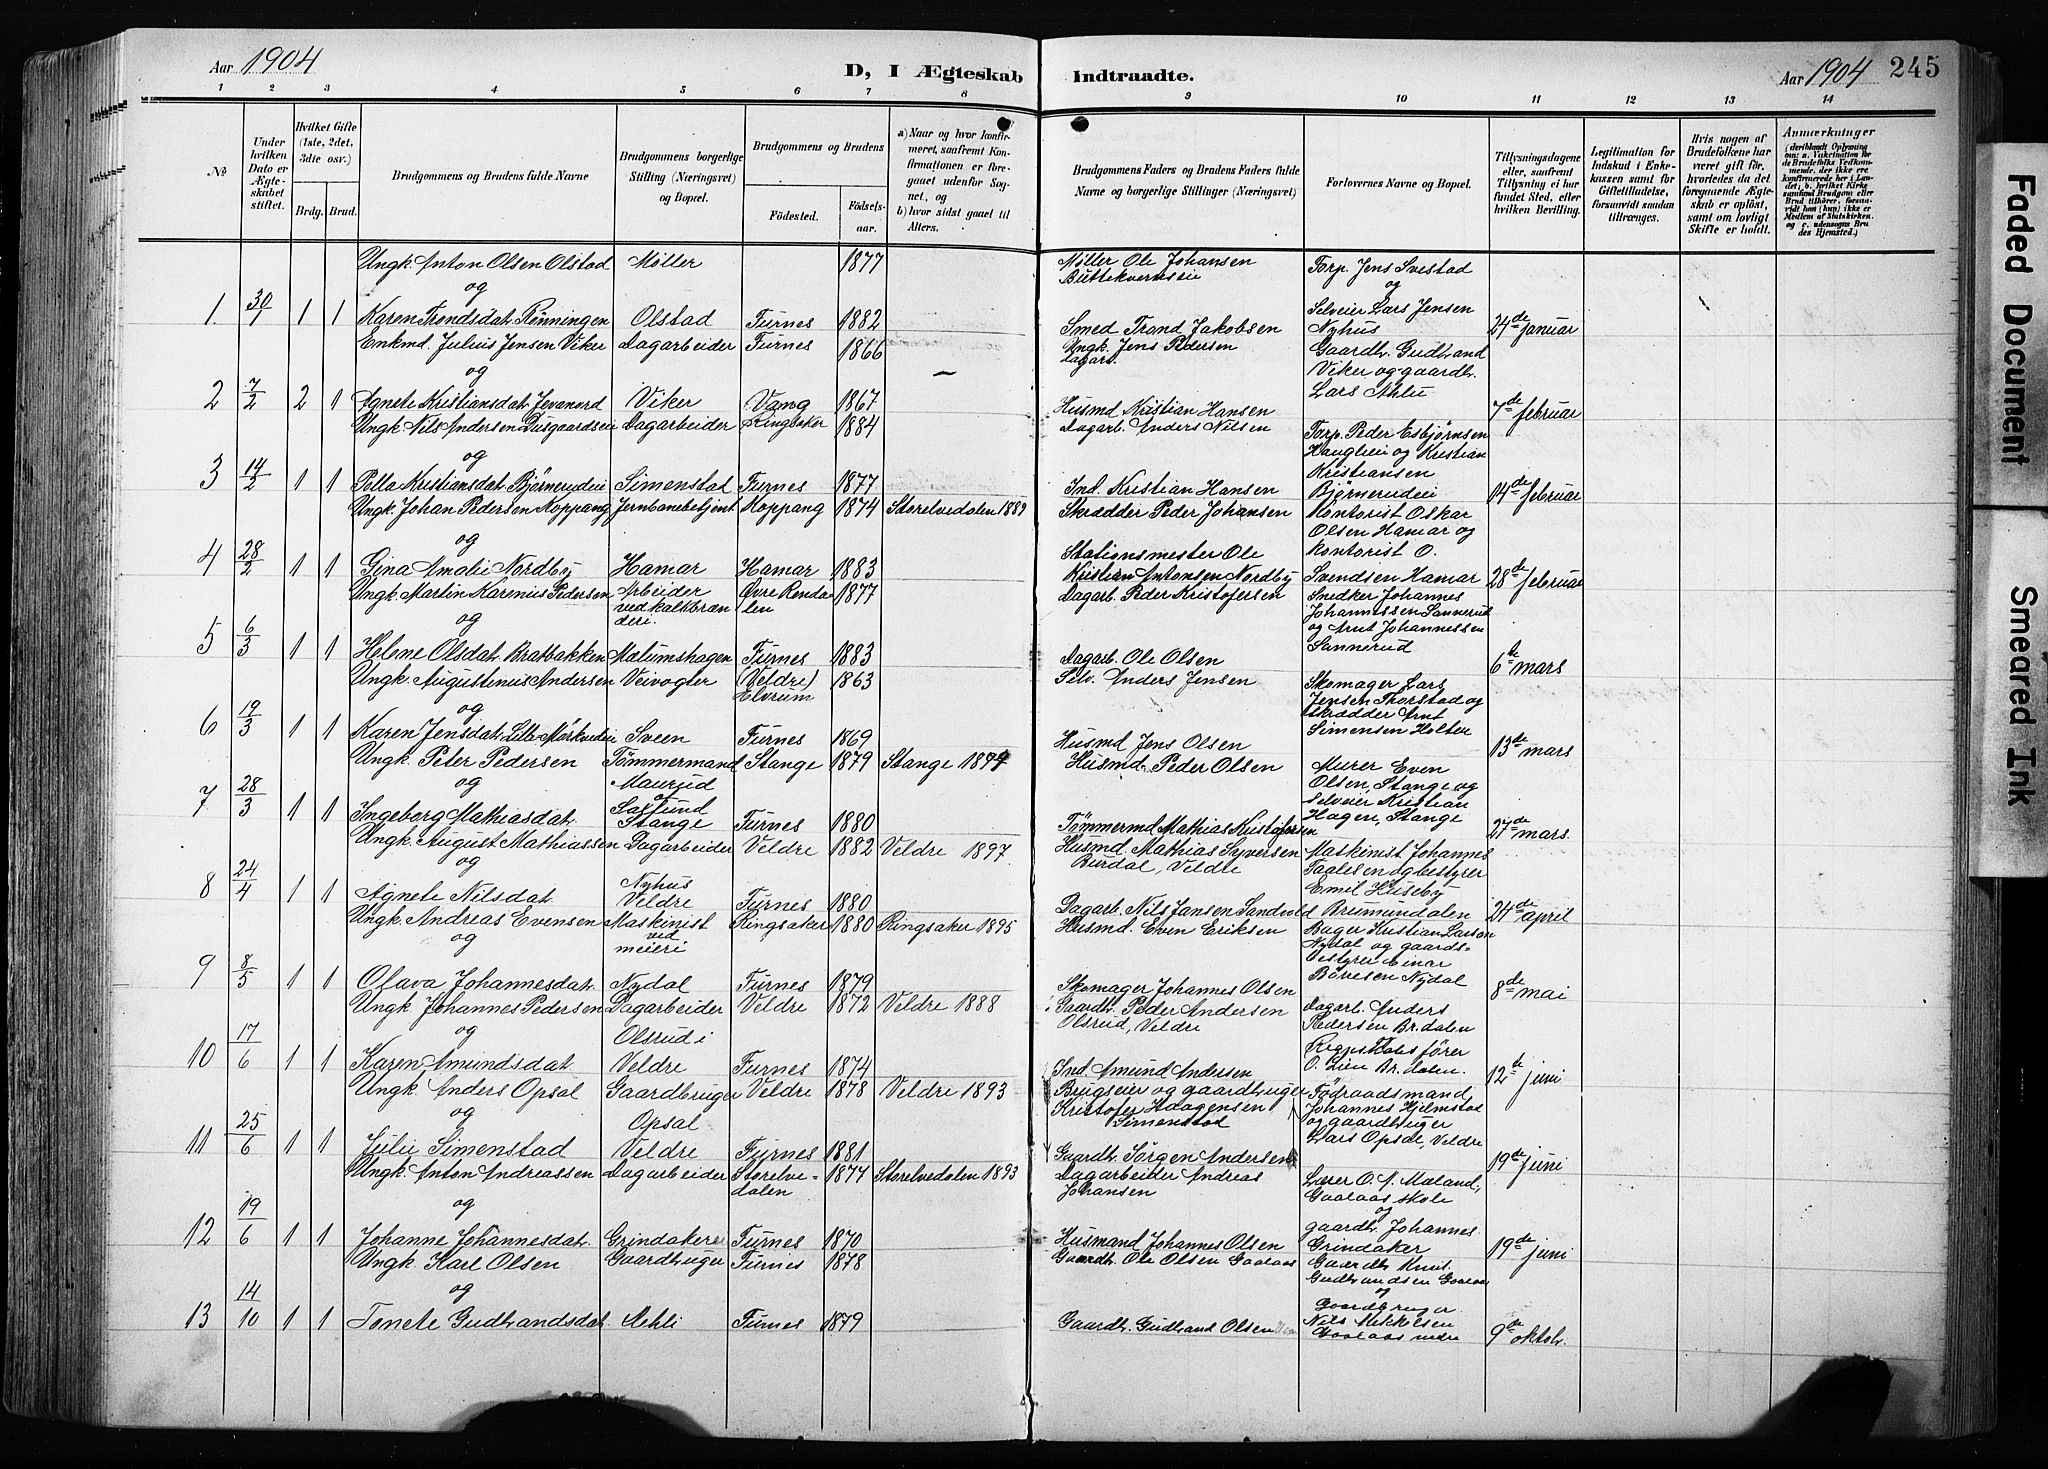 Aar 1904
D, I Ægteskab Indtraadte.
Aar 1904 245
1 2 3 4 5 6 7 8 9 10 11 12 13 14
No
Under hvilken Dato er Ægteskabet stiftet.
Hvilket Gifte (1ste, 2det, 3die osv.)
Brdg. Brud.
Brudgommens og Brudens fulde Navne
Brudgommens borgerlige Stilling (Næringsvei) og Bopæl.
Brudgommens og Brudens
Födested. Födselsaar.
a) Naar og hvor konfirmeret, saafremt Konfirmationen er foregaaet udenfor Sognet, og
b) hvor sidst gaaet til Alters.
Brudgommens Faders og Brudens Faders fulde Navne og borgerlige Stillinger (Næringsvei).
Forlovernes Navne og Bopæl.
Tillysningsdagene eller, saafremt Tillysning ei har fundet Sted, efter hvilken Bevilling.
Legitimation for Indskud i Enkekassen samt for Giftetilladelse, forsaavidt saadan tiltrænges.
Hvis nogen af Brudefolkene har været gift för, hvorledes da det foregaaende Ægteskab er oplöst, samt om lovligt Skifte er holdt.
Anmærkninger
(deriblandt Oplysning om: a. Vakcination for de Brudefolks Vedkommende, der ikke ere konfirmerede her i Landet; b. hvilket Kirkesamfund Brudgom eller Brud tilhører, forsaavidt han (hun) ikke er Medlem af Statskirken. og c. udensogns Brudes Hjemsted.)
Ungk. Anton Olsen Olstad Møller 1877 Møller Ole Johansen Buttekvernseie Torp. Jens Svestad
og
1. 30/1 1 1 Karen Trondsdat. Rönningen Olstad Furnes 1882 Smed Trond Jakobsen Selveier Lars Jensen Nyhus 24de januar
Enkmd. Julius Jensen Viker Dagarbeider Furnes 1866 Ungk. Jens Pedersen Dagarb. Gaardbr. Gudbrand
og Viker og gaardbr.
2 7/2 2 1 Agnete Kristiansdat. Jevanord Viker Vang 1867 Husmd Kristian Hansen Lars Ahlu 7de februar
Ungk. Nils Andersen Dusgaardseie Dagarbeider Ringsaker 1884 Dagarb. Anders Nilsen Torp. Peder Esbjørnsen
og Hauglien og Kristian Kristiansen
3 14/2 1 1 Polla Kristiansdat. Björnerudeie Simenstad Furnes 1877 Ind. Kristian Hansen Bjørnerudeie 14de februar
Ungk. Johan Pedersen Koppang Jernbanebetjent Koppang 1874 Storelvedalen 1889 Skrædder Peder Johansen Kontorist Oskar
og Olsen Hamar og
4 28/2 1 1 Gina Amalie Nordby Hamar Hamar 1883 Stationsmester Ole Kristian Antonsen Nordby kontorist O. Svendsen Hamar 28de februar
Ungk. Martin Karenius Pedersen Arbeider ved kalkbrænderi. Øvre Rendalen 1877 Dagarb. Peder Kristofersen Snedker Johannes
og Johannessen Sannerud og Arnt Johannessen
5 6/3 1 1 Helene Olsdat. Bratbakken Mælumshagen Furnes 1883 Dagarb. Ole Olsen Sannerud 6te mars
Ungk. Augustenus Andersen Veivogter (Veldre) Elverum 1863 Selv. Anders Jensen Skomager Lars
og Jensen Thorstad og skrædder Arnt
6 19/3 1 1 Karen Jensdat. Lille Mörkveden Sveen Furnes 1869 Husmd Jens Olsen Simensen Holter 13de mars
Ungk. Peter Pedersen Tömmermand Stange 1879 Stange 1894 Husmd. Peder Olsen Murer Even
og Maurud Olsen, Stange og
7 28/3 1 1 Ingeborg Mathiasdat. Saxlund Stange Furnes 1880 Tömmermd Mathias Kristofersen selveier Kristian Hagen, Stange 27de mars
Ungk. August Mathiassen Dagarbeider Veldre 1882 Veldre 1897. Husmd. Mathias Syversen Burdal, Veldre Maskinist Johannes
og Nyhus Taalesen og bestyrer Emil Huseby
8 24/4 1 1 Agnete Nilsdat. Veldre Furnes 1880 Dagarb. Nils Jansen Sandvold Brumundalen 24de april
Ungk. Andreas Evensen Maskinist Ringsaker 1880 Ringsaker 1895 Husmd. Even Eriksen Bager Kristian Larsen
og ved meieri Nydal og gaardsbestyrer Einar
9 8/5 1 1 Olava Johannesdat. Nydal Furnes 1879 Skomager Johannes Olsen Bövesen Nydal 8de mai
Ungk. Johannes Pedersen Dagarbeider Veldre 1872 Veldre 1888 Gaardbr. Peder Andersen Olsrud, Veldre Dagarb. Anders
og Olsrud i Pedersen Br. dalen
10 17/6 1 1 Karen Amundsdat. Veldre Furnes 1874 Ind. Amund Andersen Regnskabsfører O. Lien Br. dalen. 12te juni
Ungk. Anders Opsal Gaardbruger Veldre 1878 Veldre 1893 Brugseier og gaardbruger Fødraadsmand
og Opsal Kristofer Haagensen Simenstad Johannes Hjelmstad og gaardbruger
11 25/6 1 1 Julie Simenstad Veldre Furnes 1881 Gaardbr. Sørgen Andersen Lars Opsal, Veldre 19de juni
Ungk. Anton Andreassen Dagarbeider Storelvedalen 1874 Storelvedalen 1893 Dagarbeider Andreas Johansen Lærer O. A. Mæland, Gaalaas skole
og og
12 19/6 1 1 Johanne Johannesdat. Grindakere Furnes 1870 Husmand Johannes Olsen gaardbr. Johannes Grindaker 19de juni
Ungk. Karl Olsen Gaardbruger Furnes 1878 Gaardbr. Ole Olsen Gaalaas Gaardbr. Knut Gudbrandsen Gaalaas
og og
13 14/10 1 1 Tonete Gudbrandsdat. Aehli Furnes 1879 Gaardbr. Gudbrand Olsen Gaardbruger Nils Mikkelsen Gaalaas nedre 9de oktob.
Faded Document
Smeared Ink